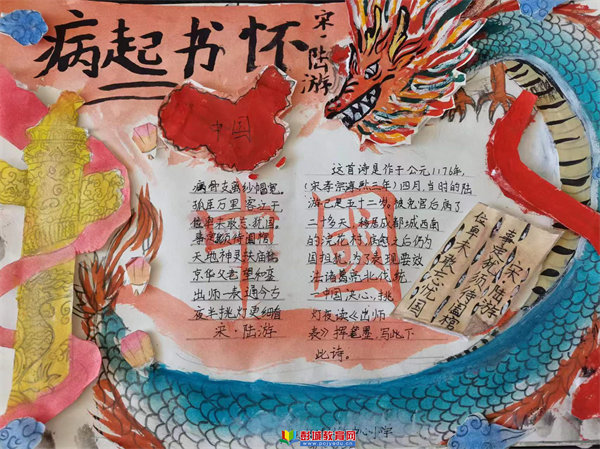 病起书怀
宋·陆游
中国
病骨支离纱帽宽，
孤臣万里客江干
位卑未敢忘忧国，
事定犹须待阖棺，
天地神灵扶庙社，
京华父老望和銮
出师一表通今古
夜半挑灯更细看
宋·陆游
这首诗是作于公元1176年，
(宋孝宗淳熙三年)四月，当时的陆
游已是五十二岁，被免官后病了
二十多天，移居成都城西南
的浣花村，病愈之后仍为
国担忧，为了表现要效
法诸葛亮北伐，统
一中国决心，挑
灯夜读《出师
表》挥笔墨，写此下
此诗。
中國
宋·陆游
事定犹须待阖棺
位卑未敢忘忧国
彭城教育网